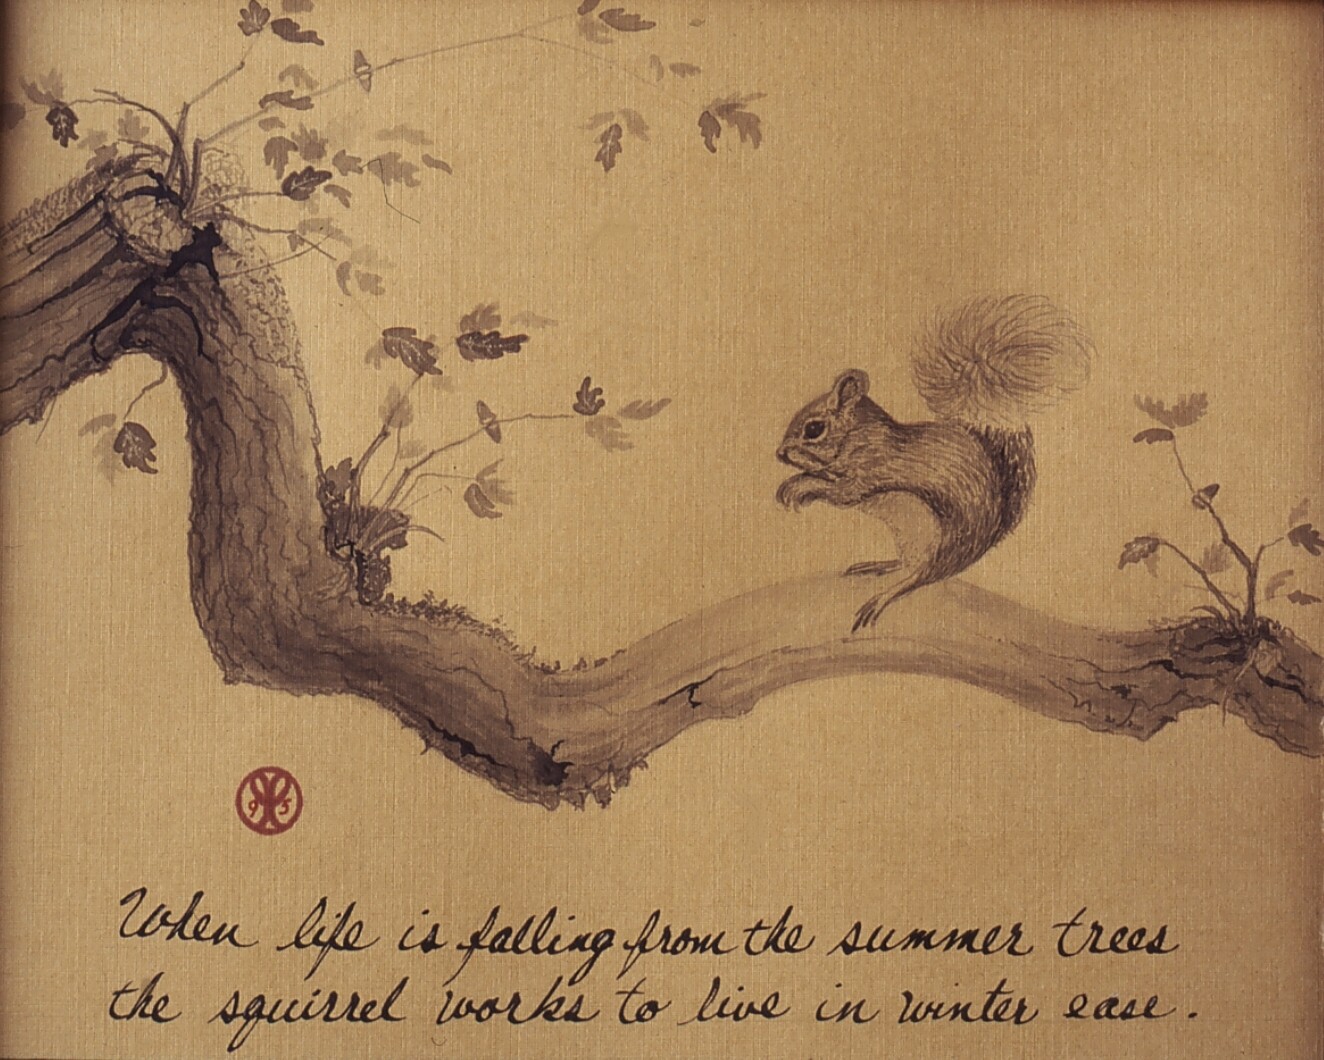 95
When life is falling from the summer trees
the squirrel works to live in winter ease.